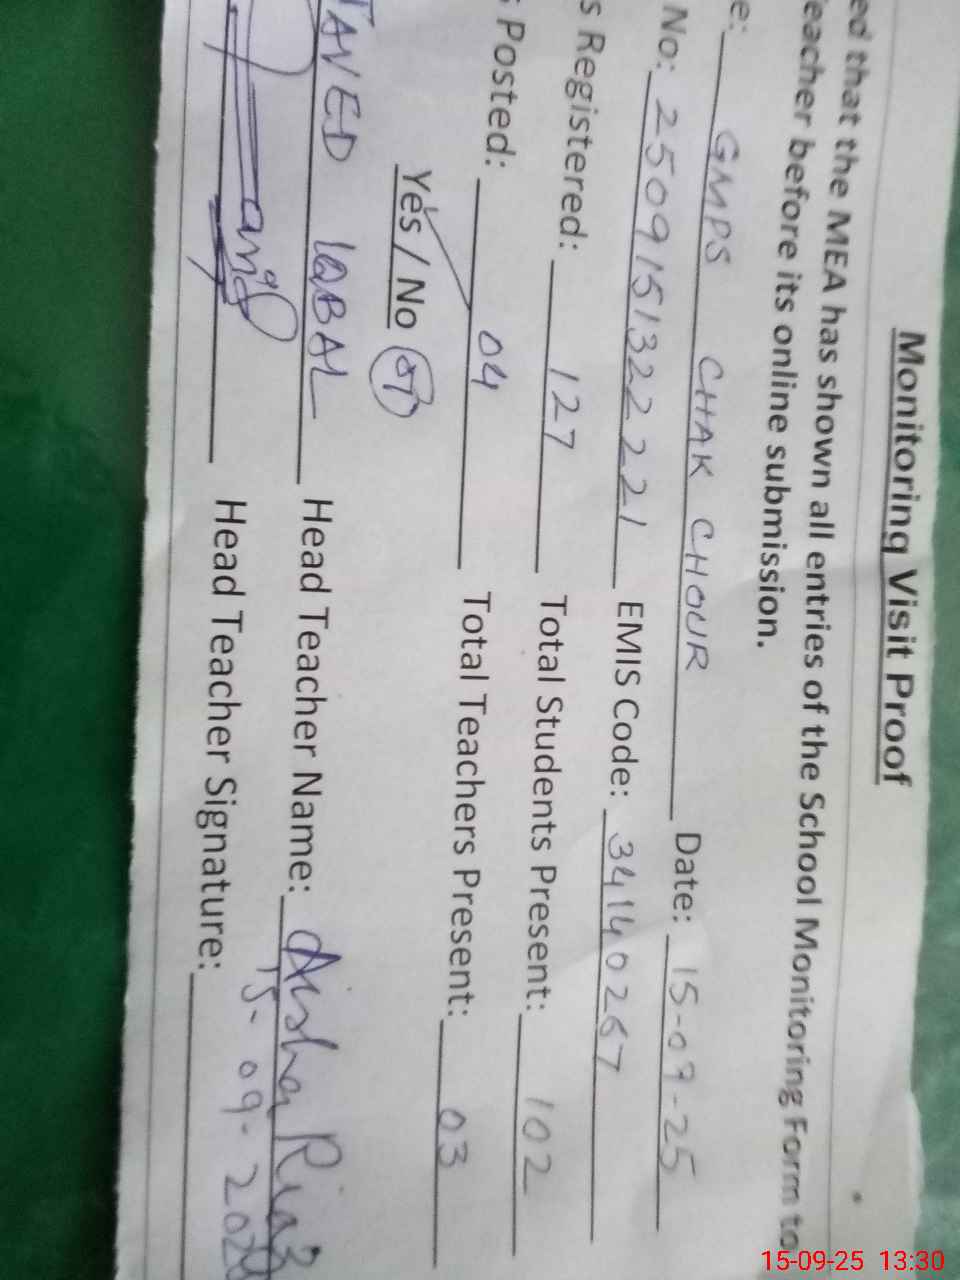 Monitoring Visit Proof
ed that the MEA has shown all entries of the School Monitoring Form to
eacher before its online submission.
e: GMPS CHAK CHOUR Date: 15-09-25
No: 250915132222 1 EMIS Code: 34140267
s Registered: 127 Total Students Present: 102
s Posted: 04 Total Teachers Present: 03
Yes / No
JAVED IQBAL Head Teacher Name: Aisha Riaz
Head Teacher Signature: 15-09-202
15-09-25 13:30